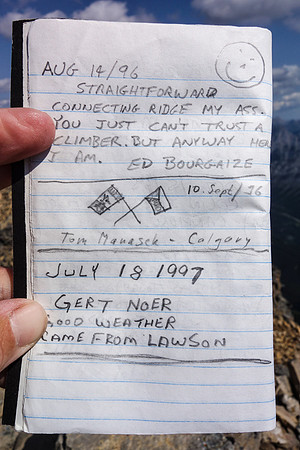 AUG 14/96
STRAIGHTFORWARD
CONNECTING RIDGE MY ASS.
YOU JUST CAN'T TRUST A
CLIMBER. BUT ANYWAY HERE
I AM. ED BOURGAIZE
10 Sept/96
Tom Manasek - Calgary
JULY 18 1997
GERT NOER
GOOD WEATHER
CAME FROM LAWSON